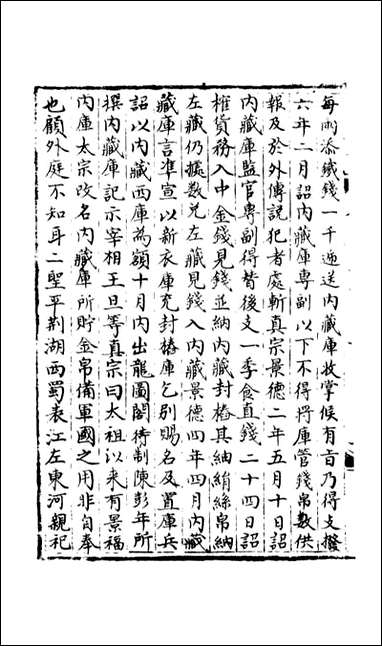 每兩添鐵錢一千過送内藏庫收掌候有旨乃得支撥
六年二月詔内藏庫專副以下不得將庫管錢帛數供
報及於外傳說犯者處斬真宗景德二年五月十日詔
内藏庫監官專副得替後支一季食直錢二十四日詔
榷貨務入中金錢見錢並納内藏封樁其紬絹絲帛納
左藏仍據數兌左藏見錢入内藏景德四年四月内藏
藏庫言準宣以新衣庫充封樁庫乞別賜名及置庫兵
詔以内藏西庫為額十月内出龍圖閣待制陳彭年所
撰内藏庫記示宰相王旦等真宗曰太祖以來有景福
内庫太宗改名内藏庫所貯金帛備軍國之用非自奉
也顧外庭不知耳二聖平荊湖西蜀表江左東河親祀